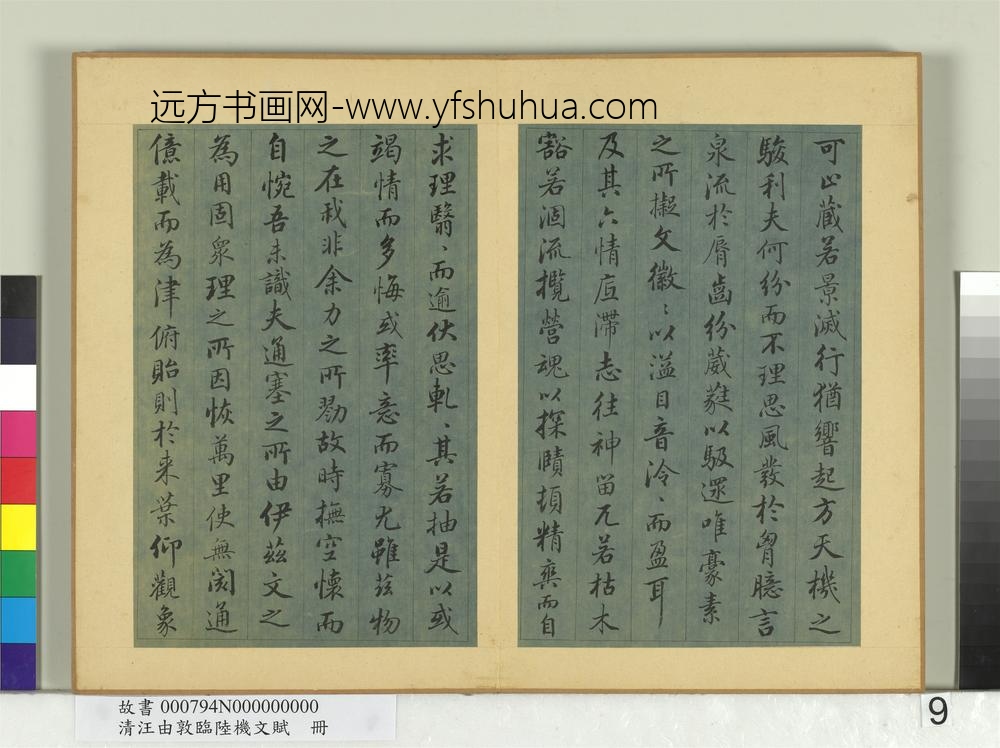 远方书画网-www.yfshuhua.com
可止藏若景滅行猶響起方天機之
駿利夫何紛而不理思風發於胷臆言
泉流於脣齒紛葳蕤以馺遝唯豪素
之所擬文徽〻以溢目音泠〻而盈耳
及其六情底滯志往神留兀若枯木
豁若涸流攬營魂以探賾頓精爽而自
求理翳〻而逾伏思軋〻其若抽是以或
竭情而多悔或率意而寡尤雖茲物
之在我非余力之所勠故時撫空懷而
自惋吾未識夫通塞之所由伊茲文之
為用固衆理之所因恢萬里使無閡通
億載而為津俯貽則於来葉仰觀象
故書 000794N000000000
清汪由敦臨陸機文賦 冊
9